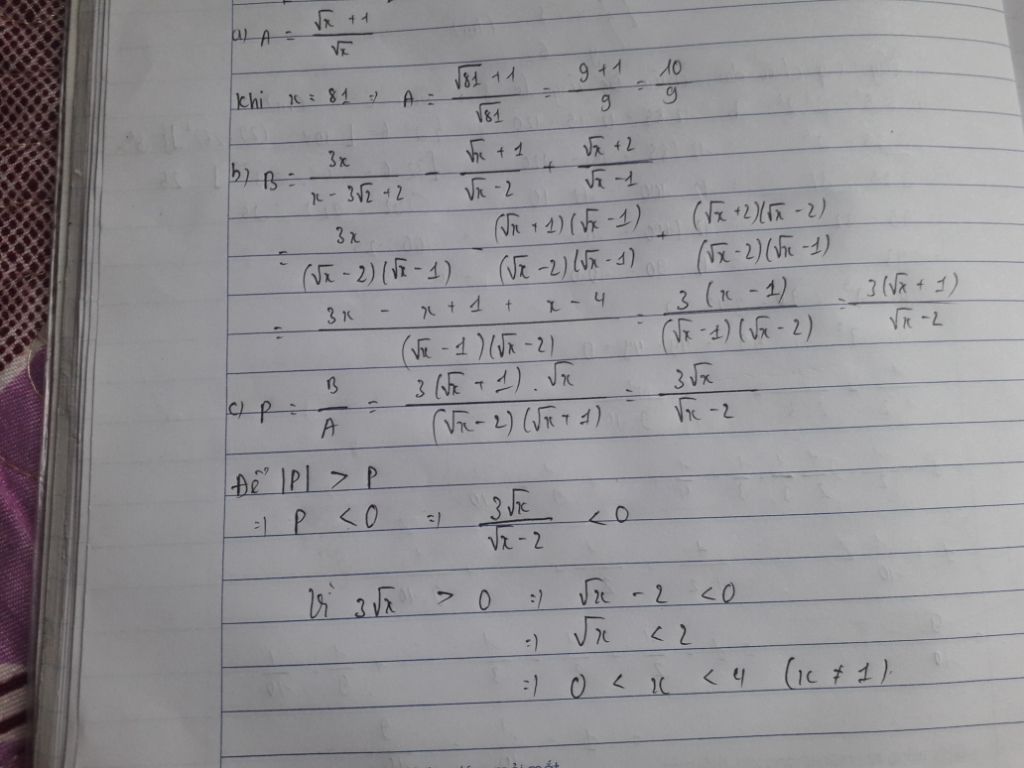 a) A = (√x + 1)/√x
Khi x = 81 => A = (√81 + 1)/√81 = (9 + 1)/9 = 10/9
b) B = 3x/(x - 3√2 + 2) - (√x + 1)/(√x - 2) + (√x + 2)/(√x - 1)
= 3x/((√x - 2)(√x - 1)) - ((√x + 1)(√x - 1))/((√x - 2)(√x - 1)) + ((√x + 2)(√x - 2))/((√x - 2)(√x - 1))
= (3x - x + 1 + x - 4)/((√x - 1)(√x - 2)) = 3(x - 1)/((√x - 1)(√x - 2)) = 3(√x + 1)/(√x - 2)
c) P = B/A = (3(√x + 1) . √x)/((√x - 2)(√x + 1)) = 3√x/(√x - 2)
Để |P| > P
=> P < 0 => 3√x/(√x - 2) < 0
Vì 3√x > 0 => √x - 2 < 0
=> √x < 2
=> 0 < x < 4 (x ≠ 1).